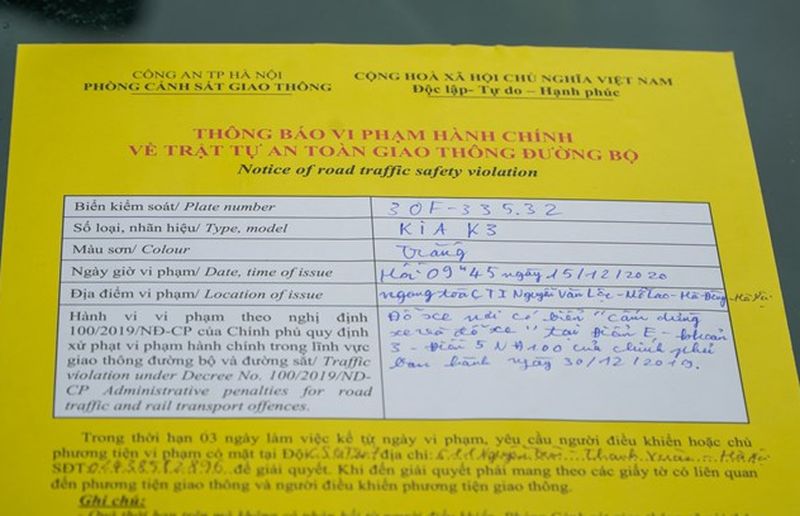 CÔNG AN TP HÀ NỘI
PHÒNG CẢNH SÁT GIAO THÔNG
CỘNG HOÀ XÃ HỘI CHỦ NGHĨA VIỆT NAM
Độc lập- Tự do – Hạnh phúc
THÔNG BÁO VI PHẠM HÀNH CHÍNH
VỀ TRẬT TỰ AN TOÀN GIAO THÔNG ĐƯỜNG BỘ
Notice of road traffic safety violation
Biển kiểm soát/ Plate number 30F-335.32
Số loại, nhãn hiệu/ Type, model KIA K3
Màu sơn/ Colour Trắng
Ngày giờ vi phạm/ Date, time of issue Hồi 09h45 ngày 15/12/2020
Địa điểm vi phạm/ Location of issue ngong toà CT1 Nguyễn Văn Lộc - Mỗ Lao - Hà Đông - Hà Nội
Hành vi vi phạm theo nghị định
100/2019/NĐ-CP của Chính phủ quy định
xử phạt vi phạm hành chính trong lĩnh vực
giao thông đường bộ và đường sắt/ Traffic
violation under Decree No. 100/2019/ND-
CP Administrative penalties for road
traffic and rail transport offences.
Đỗ xe nơi có biển "cấm dừng
xe và đỗ xe" tại Điểm E - khoản
3 - Điều 5 NĐ100 của chính phủ
ban hành ngày 30/12/2019.
Trong thời hạn 03 ngày làm việc kể từ ngày vi phạm, yêu cầu người điều khiển hoặc chủ
phương tiện vi phạm có mặt tại Đội địa chỉ: Nguyễn Thanh Xuân Hà Nội
SĐT: để giải quyết. Khi đến giải quyết phải mang theo các giấy tờ có liên quan
đến phương tiện giao thông và người điều khiển phương tiện giao thông.
Ghi chú: